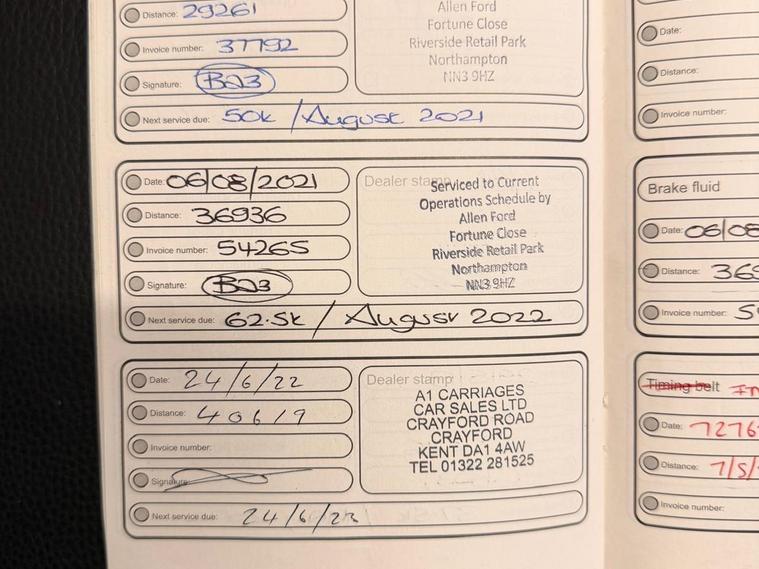 Distance: 29261
Invoice number: 37792
Signature: BQ3
Next service due: 50k / August 2021
Allen Ford
Fortune Close
Riverside Retail Park
Northampton
NN3 9HZ
Date: 06/08/2021
Distance: 36936
Invoice number: 54265
Signature: BQ3
Next service due: 62.5k / August 2022
Dealer stamp
Serviced to Current
Operations Schedule by
Allen Ford
Fortune Close
Riverside Retail Park
Northampton
NN3 9HZ
Date: 24/6/22
Distance: 40619
Invoice number:
Signature:
Next service due: 24/6/23
Dealer stamp
A1 CARRIAGES
CAR SALES LTD
CRAYFORD ROAD
CRAYFORD
KENT DA1 4AW
TEL 01322 281525
Date:
Distance:
Invoice number:
Brake fluid
Date: 06/08
Distance: 36
Invoice number: 5
Timing belt
Date: 7276
Distance: 7/5/
Invoice number: